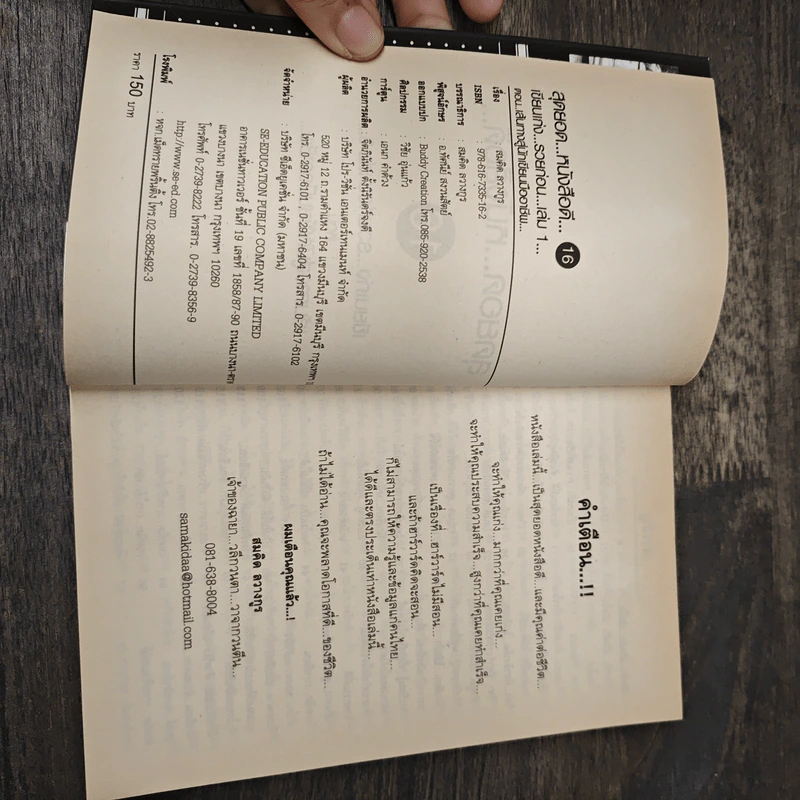 สุดยอด...หนังสือดี... 16
เขียนเก่ง...รวยก่อน...เล่ม 1...
ตอน..เส้นทางสู่นักเขียนมืออาชีพ...
เรื่อง : สมคิด ลวางกูร
ISBN : 978-616-7335-16-2
บรรณาธิการ : สมคิด ลวางกูร
พิสูจน์อักษร : อ.ทัศนีย์ สงวนสัตย์
ออกแบบปก : Buddy Creation โทร.085-920-2538
ศิลปกรรม : วิชัย อุ่นแก้ว
การ์ตูน : เอนก คำด้วง
อำนวยการผลิต : จิตภินันท์ ตั้งนิรันดร์จงดี
ผู้ผลิต : บริษัท โปร-วิชั่น เอนเตอร์เทนเมนท์ จำกัด
520 หมู่ 12 ถ.รามคำแหง 164 แขวงมีนบุรี เขตมีนบุรี กรุงเทพฯ
โทร. 0-2917-6101 , 0-2917-6404 โทรสาร. 0-2917-6102
จัดจำหน่าย : บริษัท ซีเอ็ดยูเคชั่น จำกัด (มหาชน)
SE-EDUCATION PUBLIC COMPANY LIMITED
อาคารเนชั่นทาวเวอร์ ชั้นที่ 19 เลขที่ 1858/87-90 ถนนบางนา-ตราด
แขวงบางนา เขตบางนา กรุงเทพฯ 10260
โทรศัพท์ 0-2739-8222 โทรสาร. 0-2739-8356-9
http://www.se-ed.com
โรงพิมพ์ : หจก.เม็ดทรายพริ้นติ้ง โทร.02-8825492-3
ราคา 150 บาท
คำเตือน...!!
หนังสือเล่มนี้...เป็นสุดยอดหนังสือดี...และมีคุณค่าต่อชีวิต...
จะทำให้คุณเก่ง...มากกว่าที่คุณเคยเก่ง...
จะทำให้คุณประสบความสำเร็จ...สูงกว่าที่คุณเคยทำสำเร็จ...
เป็นเรื่องที่...ฮาร์วาร์ดไม่มีสอน...
และถ้าฮาร์วาร์ดคิดจะสอน...
ก็ไม่สามารถให้ความรู้และข้อมูลแก่คนไทย...
ได้ดีและตรงประเด็นเท่าหนังสือเล่มนี้...
ถ้าไม่ได้อ่าน...คุณจะพลาดโอกาสที่ดี...ของชีวิต...
ผมเตือนคุณแล้ว...!
สมคิด ลวางกูร
เจ้าของฉายา...วลีกวนตา...วาจากวนตีน...
081-638-8004
samakidaa@hotmail.com